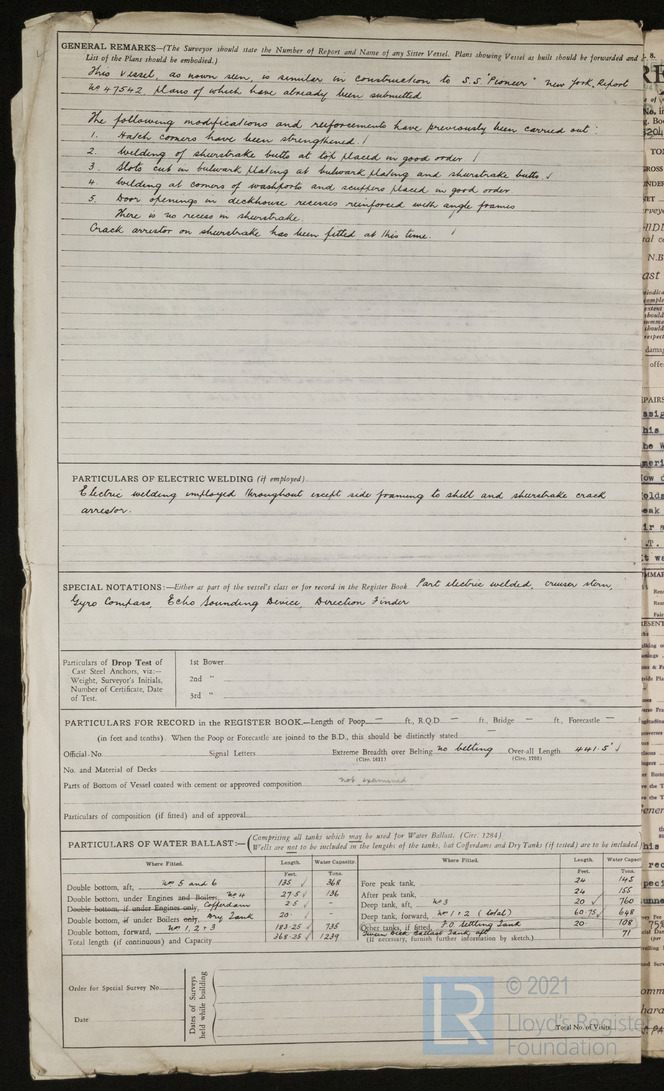 GENERAL REMARKS—(The Surveyor should state the Number of Report and Name of any Sister Vessel. Plans showing Vessel as built should be forwarded and
List of the Plans should be embodied.)
This vessel, as now seen, is similar in construction to S.S. "Pioneer" New York, Report
No 47542 plans of which have already been submitted
The following modifications and reinforcements have previously been carried out:
1. Hatch corners have been strengthened. /
2. Welding of sheerstrake butts at top placed in good order /
3. Slots cut in bulwark plating at bulwark plating and sheerstrake butts ✓
4. Welding at corners of washports and scuppers placed in good order
5. Door openings in deckhouse recesses reinforced with angle frames
There is no recess in sheerstrake.
Crack arrestor on sheerstrake has been fitted at this time. /
PARTICULARS OF ELECTRIC WELDING (if employed)
Electric welding employed throughout except side framing to shell and sheerstrake crack
arrestor.
SPECIAL NOTATIONS:—Either as part of the vessel's class or for record in the Register Book Part electric welded, cruiser stern,
Gyro Compass, Echo Sounding Device, Direction Finder
Particulars of Drop Test of
Cast Steel Anchors, viz:—
Weight, Surveyor's Initials,
Number of Certificate, Date
of Test.
1st Bower
2nd "
3rd "
PARTICULARS FOR RECORD in the REGISTER BOOK.—Length of Poop — ft., R.Q.D. — ft., Bridge — ft., Forecastle —
(in feet and tenths). When the Poop or Forecastle are joined to the B.D., this should be distinctly stated —
Official No. Signal Letters Extreme Breadth over Belting No belting Over-all Length 441.5' ✓
(Circ. 1611) (Circ. 1703)
No. and Material of Decks
Parts of Bottom of Vessel coated with cement or approved composition not examined
Particulars of composition (if fitted) and of approval
PARTICULARS OF WATER BALLAST:— (Comprising all tanks which may be used for Water Ballast. (Circ. 1284)
Wells are not to be included in the lengths of the tanks, but Cofferdams and Dry Tanks (if tested) are to be included.)
Where Fitted. Length. Water Capacity. Where Fitted. Length. Water Capac
Feet. Tons. Feet. Tons.
Double bottom, aft, No 5 and 6 135 ✓ 368
Double bottom, under Engines and Boilers No 4 27.5 ✓ 136
Double bottom, if under Engines only, Cofferdams 2.5 ✓ -
Double bottom, if under Boilers only, Dry Tank 20 -
Double bottom, forward, No 1, 2 + 3 183.25 ✓ 735
Total length (if continuous) and Capacity 368.25 ✓ 1239
Fore peak tank, 24 145
After peak tank, 24 155
Deep tank, aft, No 3 20 ✓ 760
Deep tank, forward, No 1 + 2 (total) 60.75 ✓ 648
Other tanks, if fitted, F.O. Settling Tank 20 108
Deck Ballast Tank, aft 71
(If necessary, furnish further information by sketch.)
Order for Special Survey No.
Date
Dates of Surveys
held while building
Total No. of Visits
© 2021
Lloyd's Register
Foundation
LR